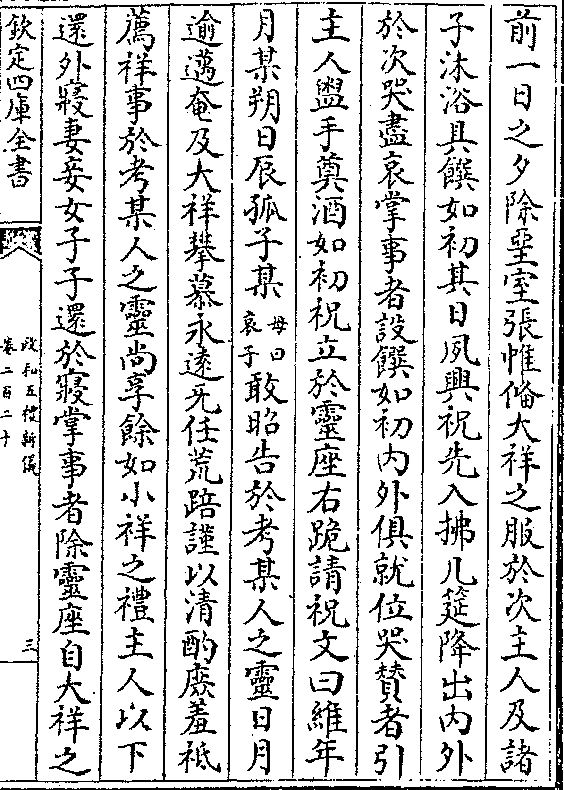 前一日之夕除堊室張帷備大祥之服於次主人及諸
子沐浴具饌如初其日夙興祝先入拂几筵降出內外
於次哭盡哀掌事者設饌如初內外俱就位哭贊者引
主人盥手奠酒如初祝立於靈座右跪請祝文曰維年
月某朔日辰孤子某母曰哀子敢昭告於考某人之靈日月
逾邁奄及大祥攀慕永遠旡任荒踣謹以清酌庶羞祗
薦祥事於考某人之靈尚享餘如小祥之禮主人以下
還外寢妻妾女子子還於寢掌事者除靈座自大祥之
欽定四庫全書
政和五禮新儀
卷二百二十
三